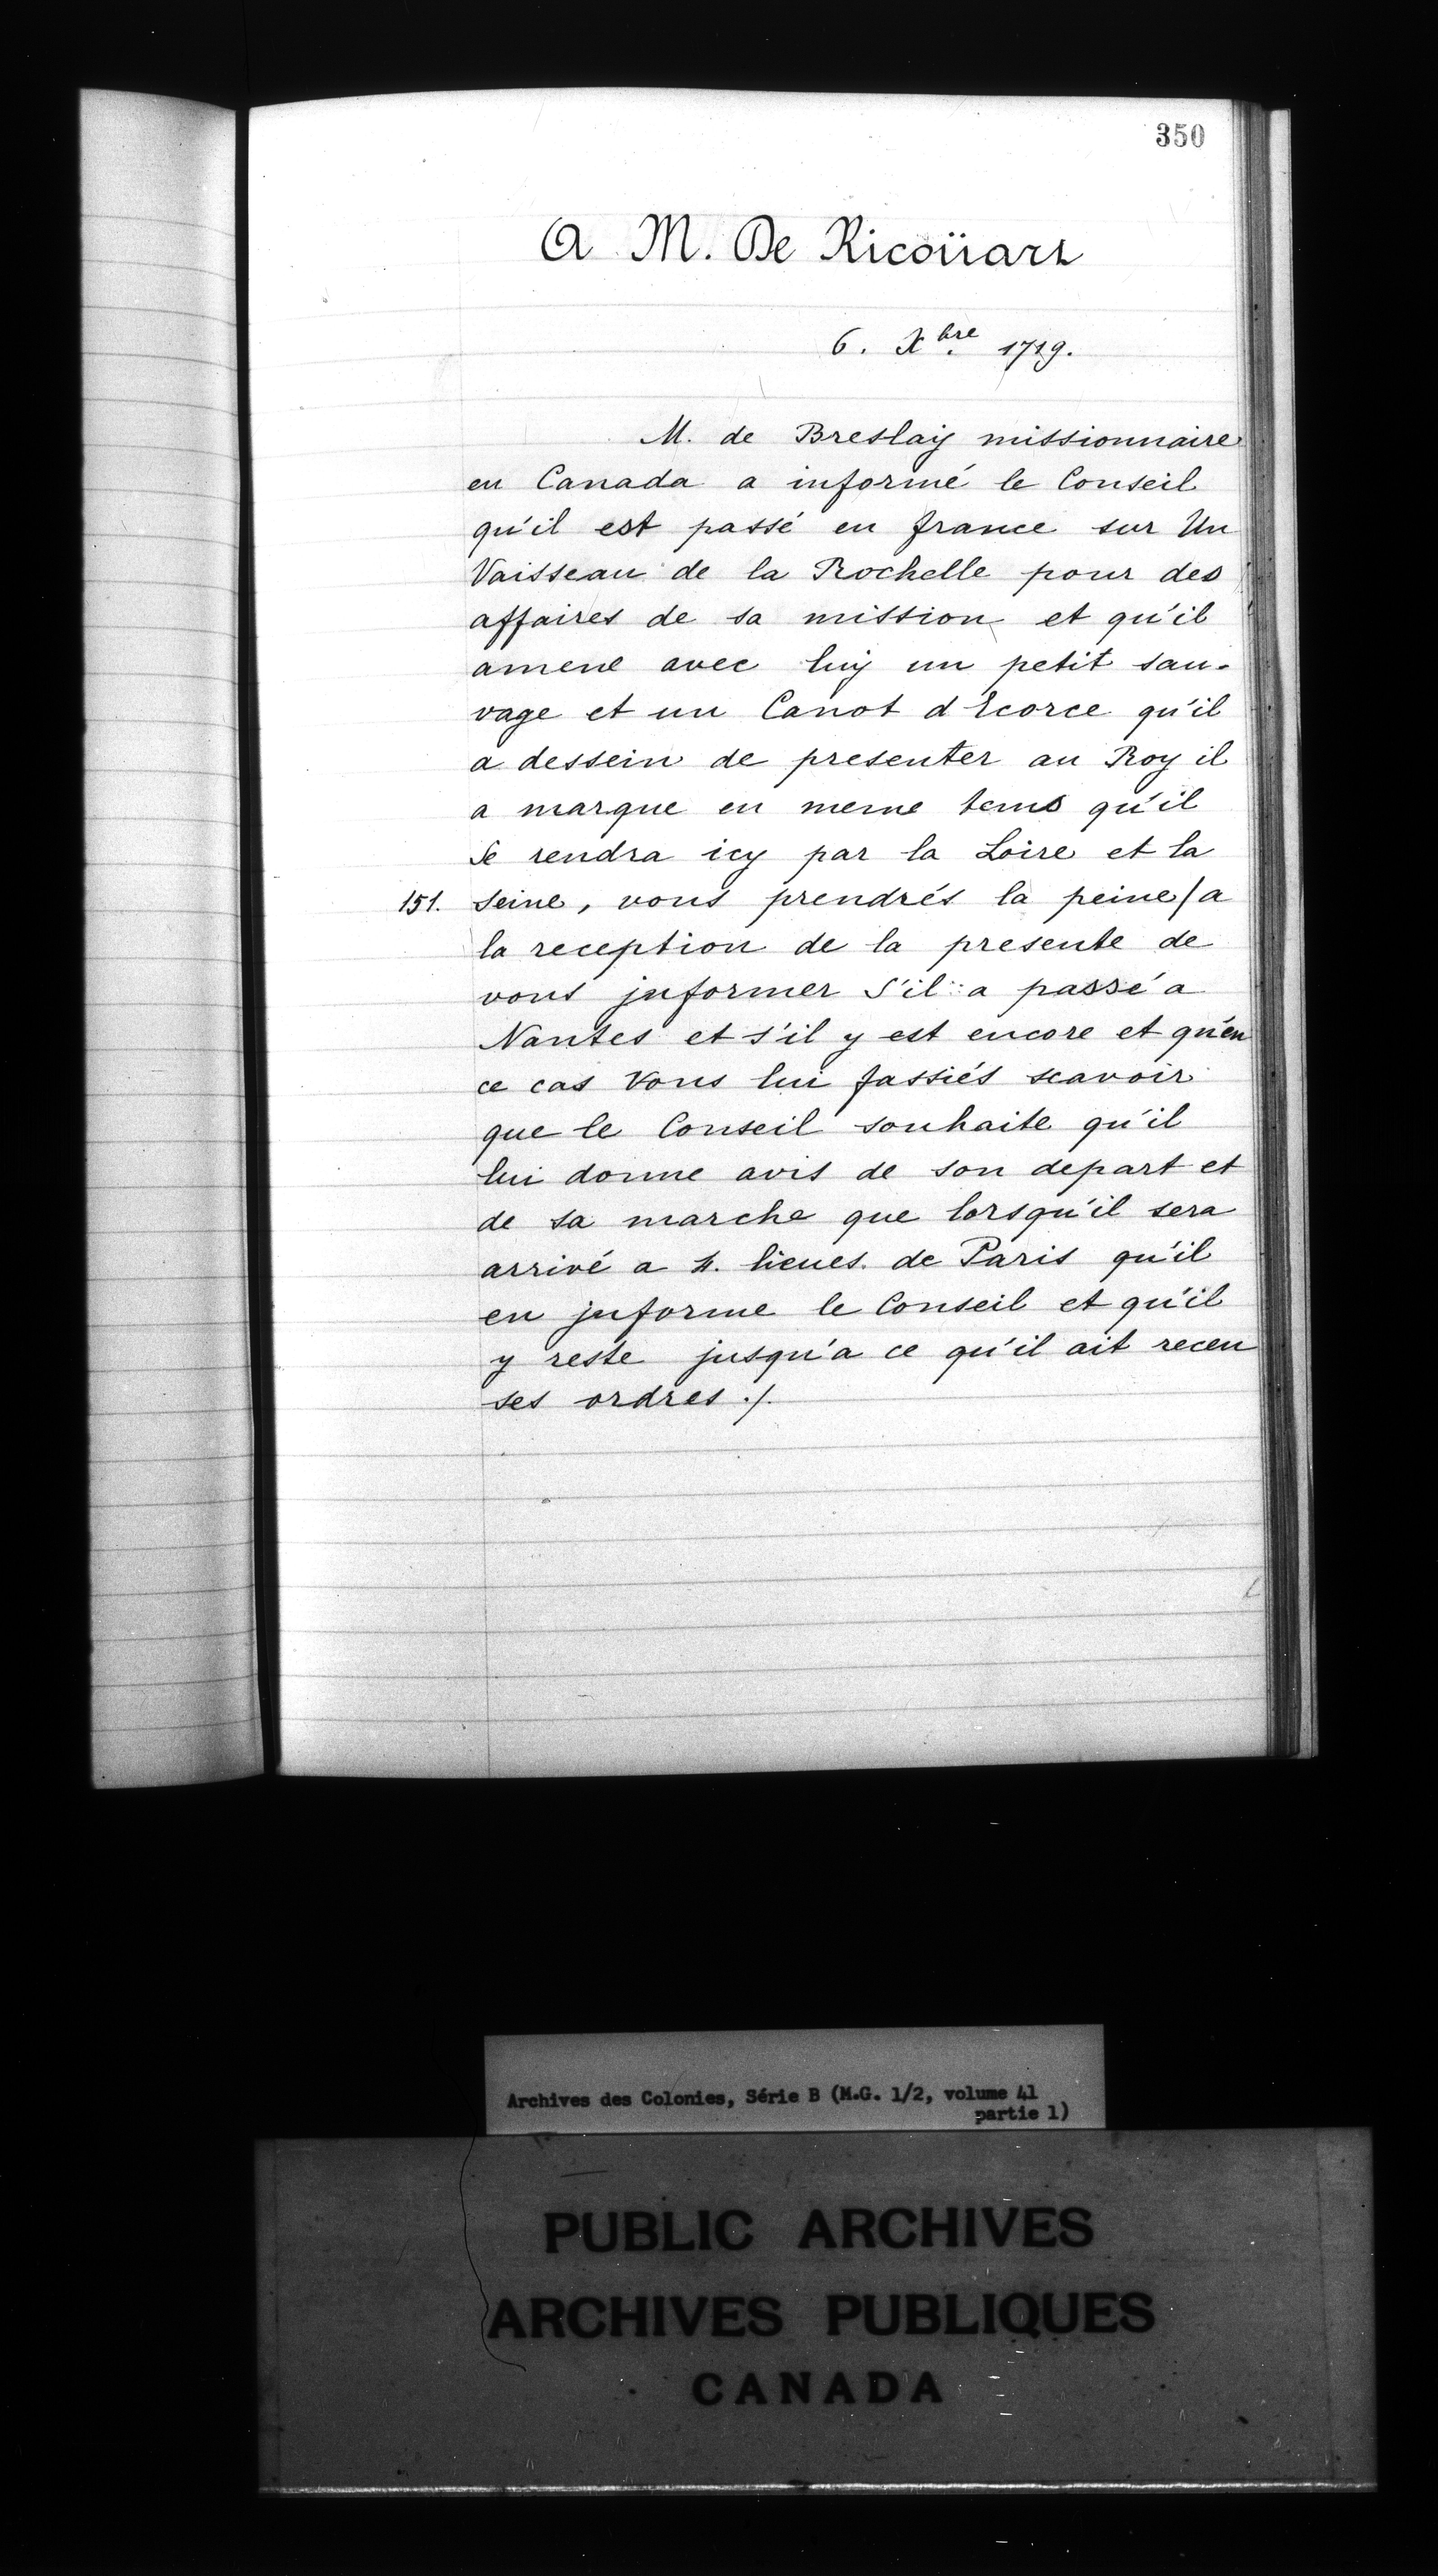 350
A M. De Ricoüart
6. Xbre 1719.
M. de Breslaÿ missionnaire
en Canada a informé le Conseil
qu'il est passé en france sur Un
Vaisseau de la Rochelle pour des
affaires de sa mission et qu'il
amene avec luÿ un petit sau-
vage et un Canot d'Ecorce qu'il
a dessein de presenter au Roy il
a marque en meme tems qu'il
Se rendra icy par la Loire et la
151. seine, vous prendrés la peine / a
la reception de la presente de
vous jnformer S'il a passé a
Nantes et s'il y est encore et qu'en
ce cas Vous lui fassiés scavoir
que le Conseil souhaite qu'il
lui donne avis de son depart et
de sa marche que lorsqu'il sera
arrivé a 4. lieues de Paris qu'il
en jnforme le Conseil et qu'il
y reste jusqu'a ce qu'il ait receu
ses ordres ./.
Archives des Colonies, Série B (M.G. 1/2, volume 41
partie 1)
PUBLIC ARCHIVES
ARCHIVES PUBLIQUES
CANADA